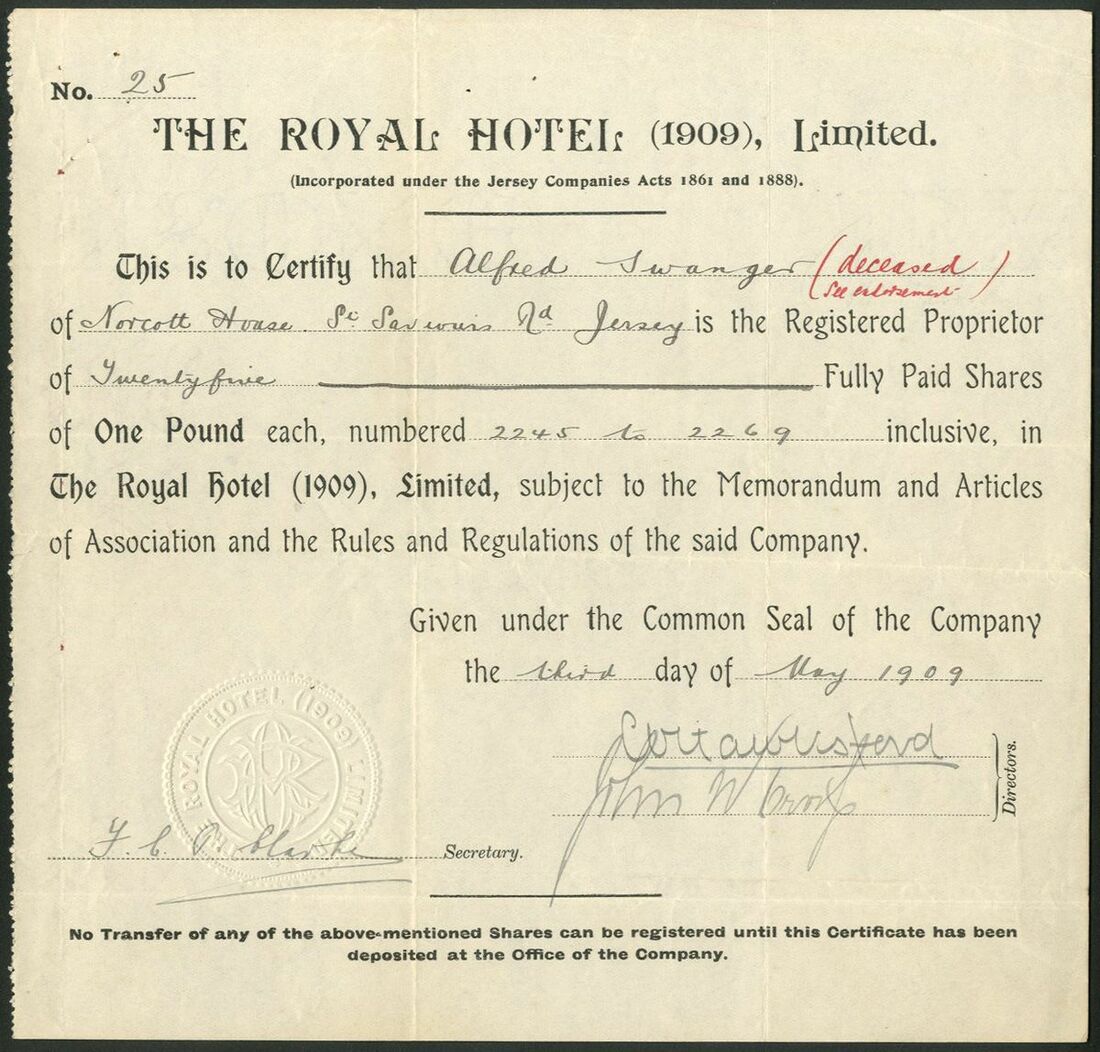 No. 25
THE ROYAL HOTEL (1909), Limited.
(Incorporated under the Jersey Companies Acts 1861 and 1888).
This is to Certify that Alfred Swanger (deceased)
See endorsement
of Norcott House. St. Saviours Rd Jersey is the Registered Proprietor
of Twentyfive Fully Paid Shares
of One Pound each, numbered 2245 to 2269 inclusive, in
The Royal Hotel (1909), Limited, subject to the Memorandum and Articles
of Association and the Rules and Regulations of the said Company.
Given under the Common Seal of the Company
the third day of May 1909
John W
Directors.
THE ROYAL HOTEL (1909) LIMITED
F. C. Clarke Secretary.
No Transfer of any of the above-mentioned Shares can be registered until this Certificate has been
deposited at the Office of the Company.